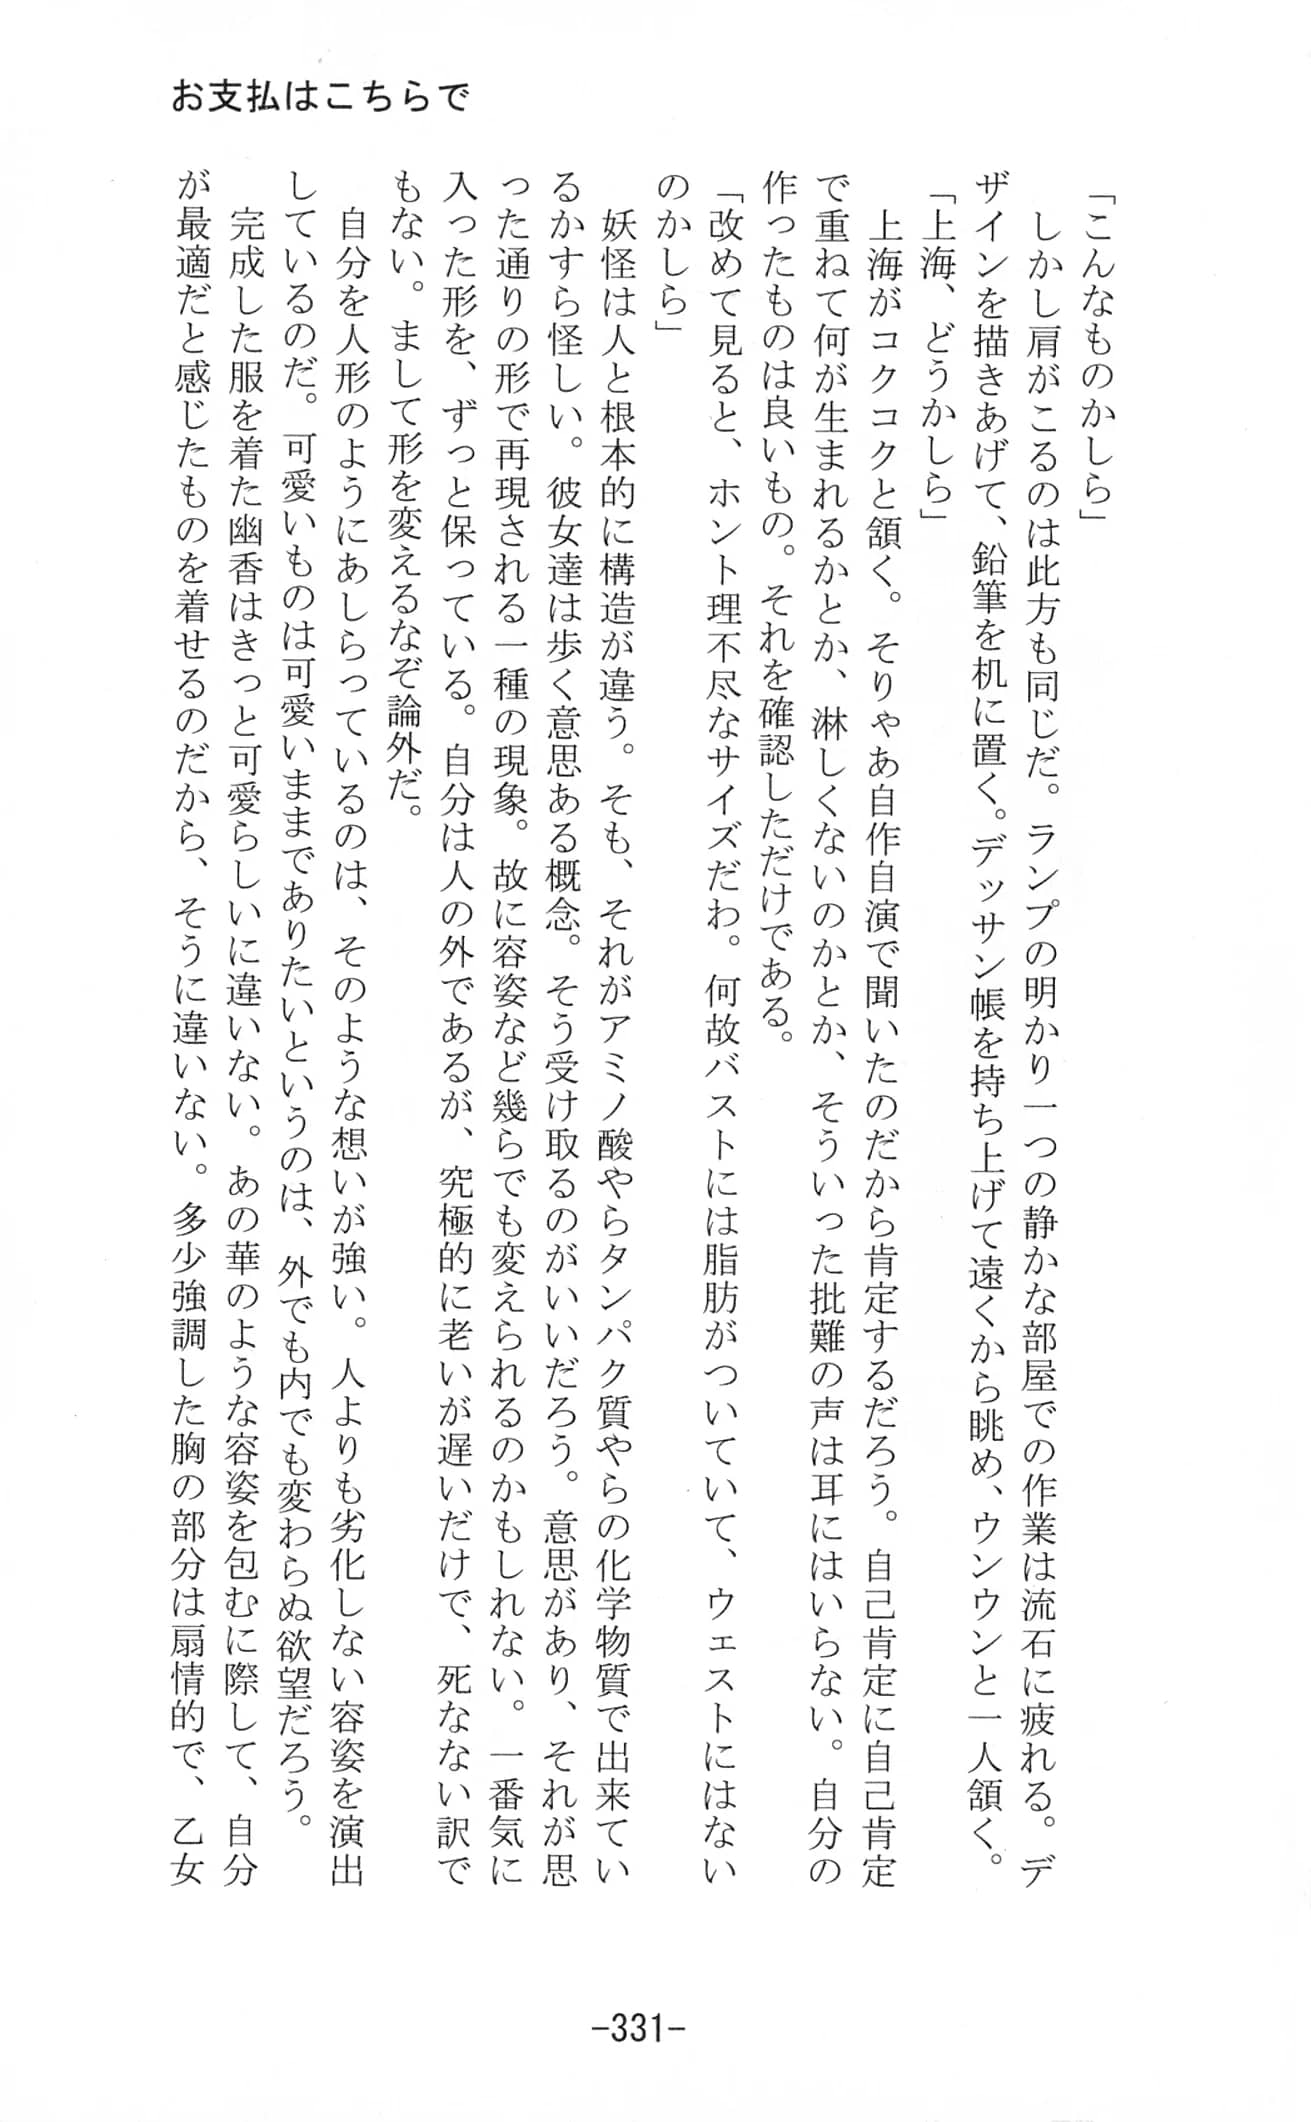 お支払はこちらで
「こんなものかしら」
しかし肩がこるのは此方も同じだ。ランプの明かり一つの静かな部屋での作業は流石に疲れる。デ
ザインを描きあげて、鉛筆を机に置く。デッサン帳を持ち上げて遠くから眺め、ウンウンと一人頷く。
「上海、どうかしら」
上海がコクコクと頷く。そりゃあ自作自演で聞いたのだから肯定するだろう。自己肯定に自己肯定
で重ねて何が生まれるかとか、淋しくないのかとか、そういった批難の声は耳にはいらない。自分の
作ったものは良いもの。それを確認しただけである。
「改めて見ると、ホント理不尽なサイズだわ。何故バストには脂肪がついていて、ウェストにはない
のかしら」
妖怪は人と根本的に構造が違う。そも、それがアミノ酸やらタンパク質やらの化学物質で出来てい
るかすら怪しい。彼女達は歩く意思ある概念。そう受け取るのがいいだろう。意思があり、それが思
った通りの形で再現される一種の現象。故に容姿など幾らでも変えられるのかもしれない。一番気に
入った形を、ずっと保っている。自分は人の外であるが、究極的に老いが遅いだけで、死なない訳で
もない。まして形を変えるなぞ論外だ。
自分を人形のようにあしらっているのは、そのような想いが強い。人よりも劣化しない容姿を演出
しているのだ。可愛いものは可愛いままでありたいというのは、外でも内でも変わらぬ欲望だろう。
完成した服を着た幽香はきっと可愛らしいに違いない。あの華のような容姿を包むに際して、自分
が最適だと感じたものを着せるのだから、そうに違いない。多少強調した胸の部分は扇情的で、乙女
-331-